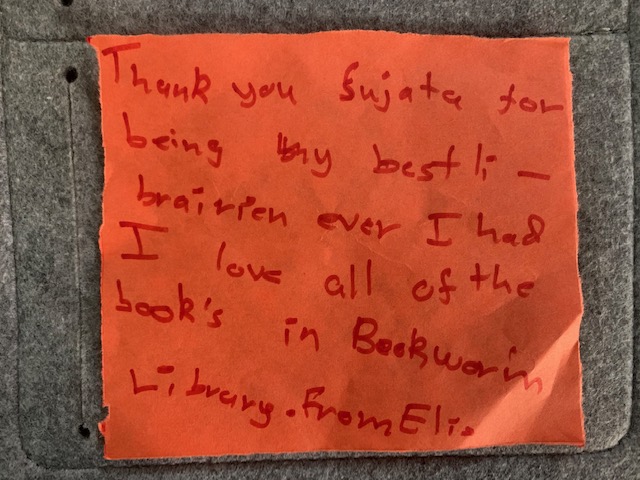 Thank you Sujata for
being my best li -
brairien ever I had
I love all of the
book's in Bookworm
Library. From Eli.